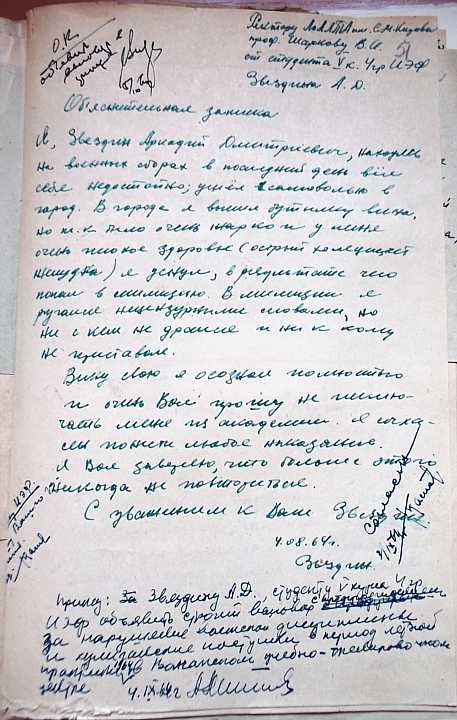 Ректору ЛОЛЛТА им. С.М. Кирова
проф. Шаркову В.И.
от студента V к. 4 гр ИЭФ
Звездина А.Д.
О.К.
объявить
выговор
Объяснительная записка
Я, Звездин Аркадий Дмитриевич, находясь
на военных сборах в последний день вёл
себя недостойно; ушёл самовольно в
город. В городе я выпил бутылку вина,
но т.к. было очень жарко и у меня
очень плохое здоровье (острый холецистит
желудка) я уснул, в результате чего
попал в милицию. В милиции я
ругался нецензурными словами, но
ни с кем не дрался и ни к кому
не приставал.
Вину свою я осознал полностью
и очень Вас прошу не исклю-
чать меня из академии. Я соглас
любое наказание.
Я Вас заверяю, что больше этого
никогда не повториться.
С уважением к Вам Звездин
4.08.64г.
Звездин.
Согласен
Приказ: За Звездину А.Д., студенту V курса 4 гр
ИЭФ объявить строгий выговор
за нарушение воинской дисциплины
и хулиганские поступки в период
практики в учебно-тренировочном
центре 4.IX.64г